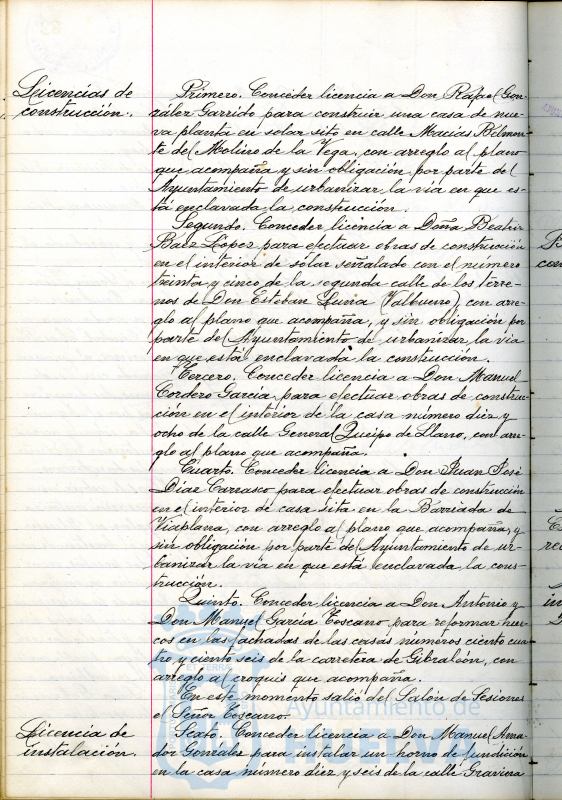 Licencias de
construcción.
Primero. Conceder licencia a Don Rafael Gon-
zález Garrido para construir una casa de nue-
va planta en solar sito en calle Macías Belmon-
te del Molino de la Vega, con arreglo al plano
que acompaña y sin obligación por parte del
Ayuntamiento de urbanizar la vía en que es-
tá enclavada la construcción.
Segundo. Conceder licencia a Doña Beatriz
Báez López para efectuar obras de construcción
en el interior de solar señalado con el número
treinta y cinco de la segunda calle de los terre-
nos de Don Esteban Luna (Valbueno), con arre-
glo al plano que acompaña, y sin obligación por
parte del Ayuntamiento de urbanizar la vía
en que está enclavada la construcción.
Tercero. Conceder licencia a Don Manuel
Cordero García para efectuar obras de construc-
ción en el interior de la casa número diez y
ocho de la calle General Queipo de Llano, con arre-
glo al plano que acompaña.
Cuarto. Conceder licencia a Don Juan José
Díaz Carrasco para efectuar obras de construcción
en el interior de casa sita en la Barriada de
Viaplana, con arreglo al plano que acompaña, y
sin obligación por parte del Ayuntamiento de ur-
banizar la vía en que está enclavada la cons-
trucción.
Quinto. Conceder licencia a Don Antonio y
Don Manuel García Toscano para reformar hue-
cos en las fachadas de las casas números ciento cua-
tro y ciento seis de la carretera de Gibraleón, con
arreglo al croquis que acompaña.
En este momento salió del Salón de Sesiones
el Señor Toscano.
Licencia de
instalación.
Sexto. Conceder licencia a Don Manuel Ama-
dor González para instalar un horno de fundición
en la casa número diez y seis de la calle Graviora
Ayuntamiento de